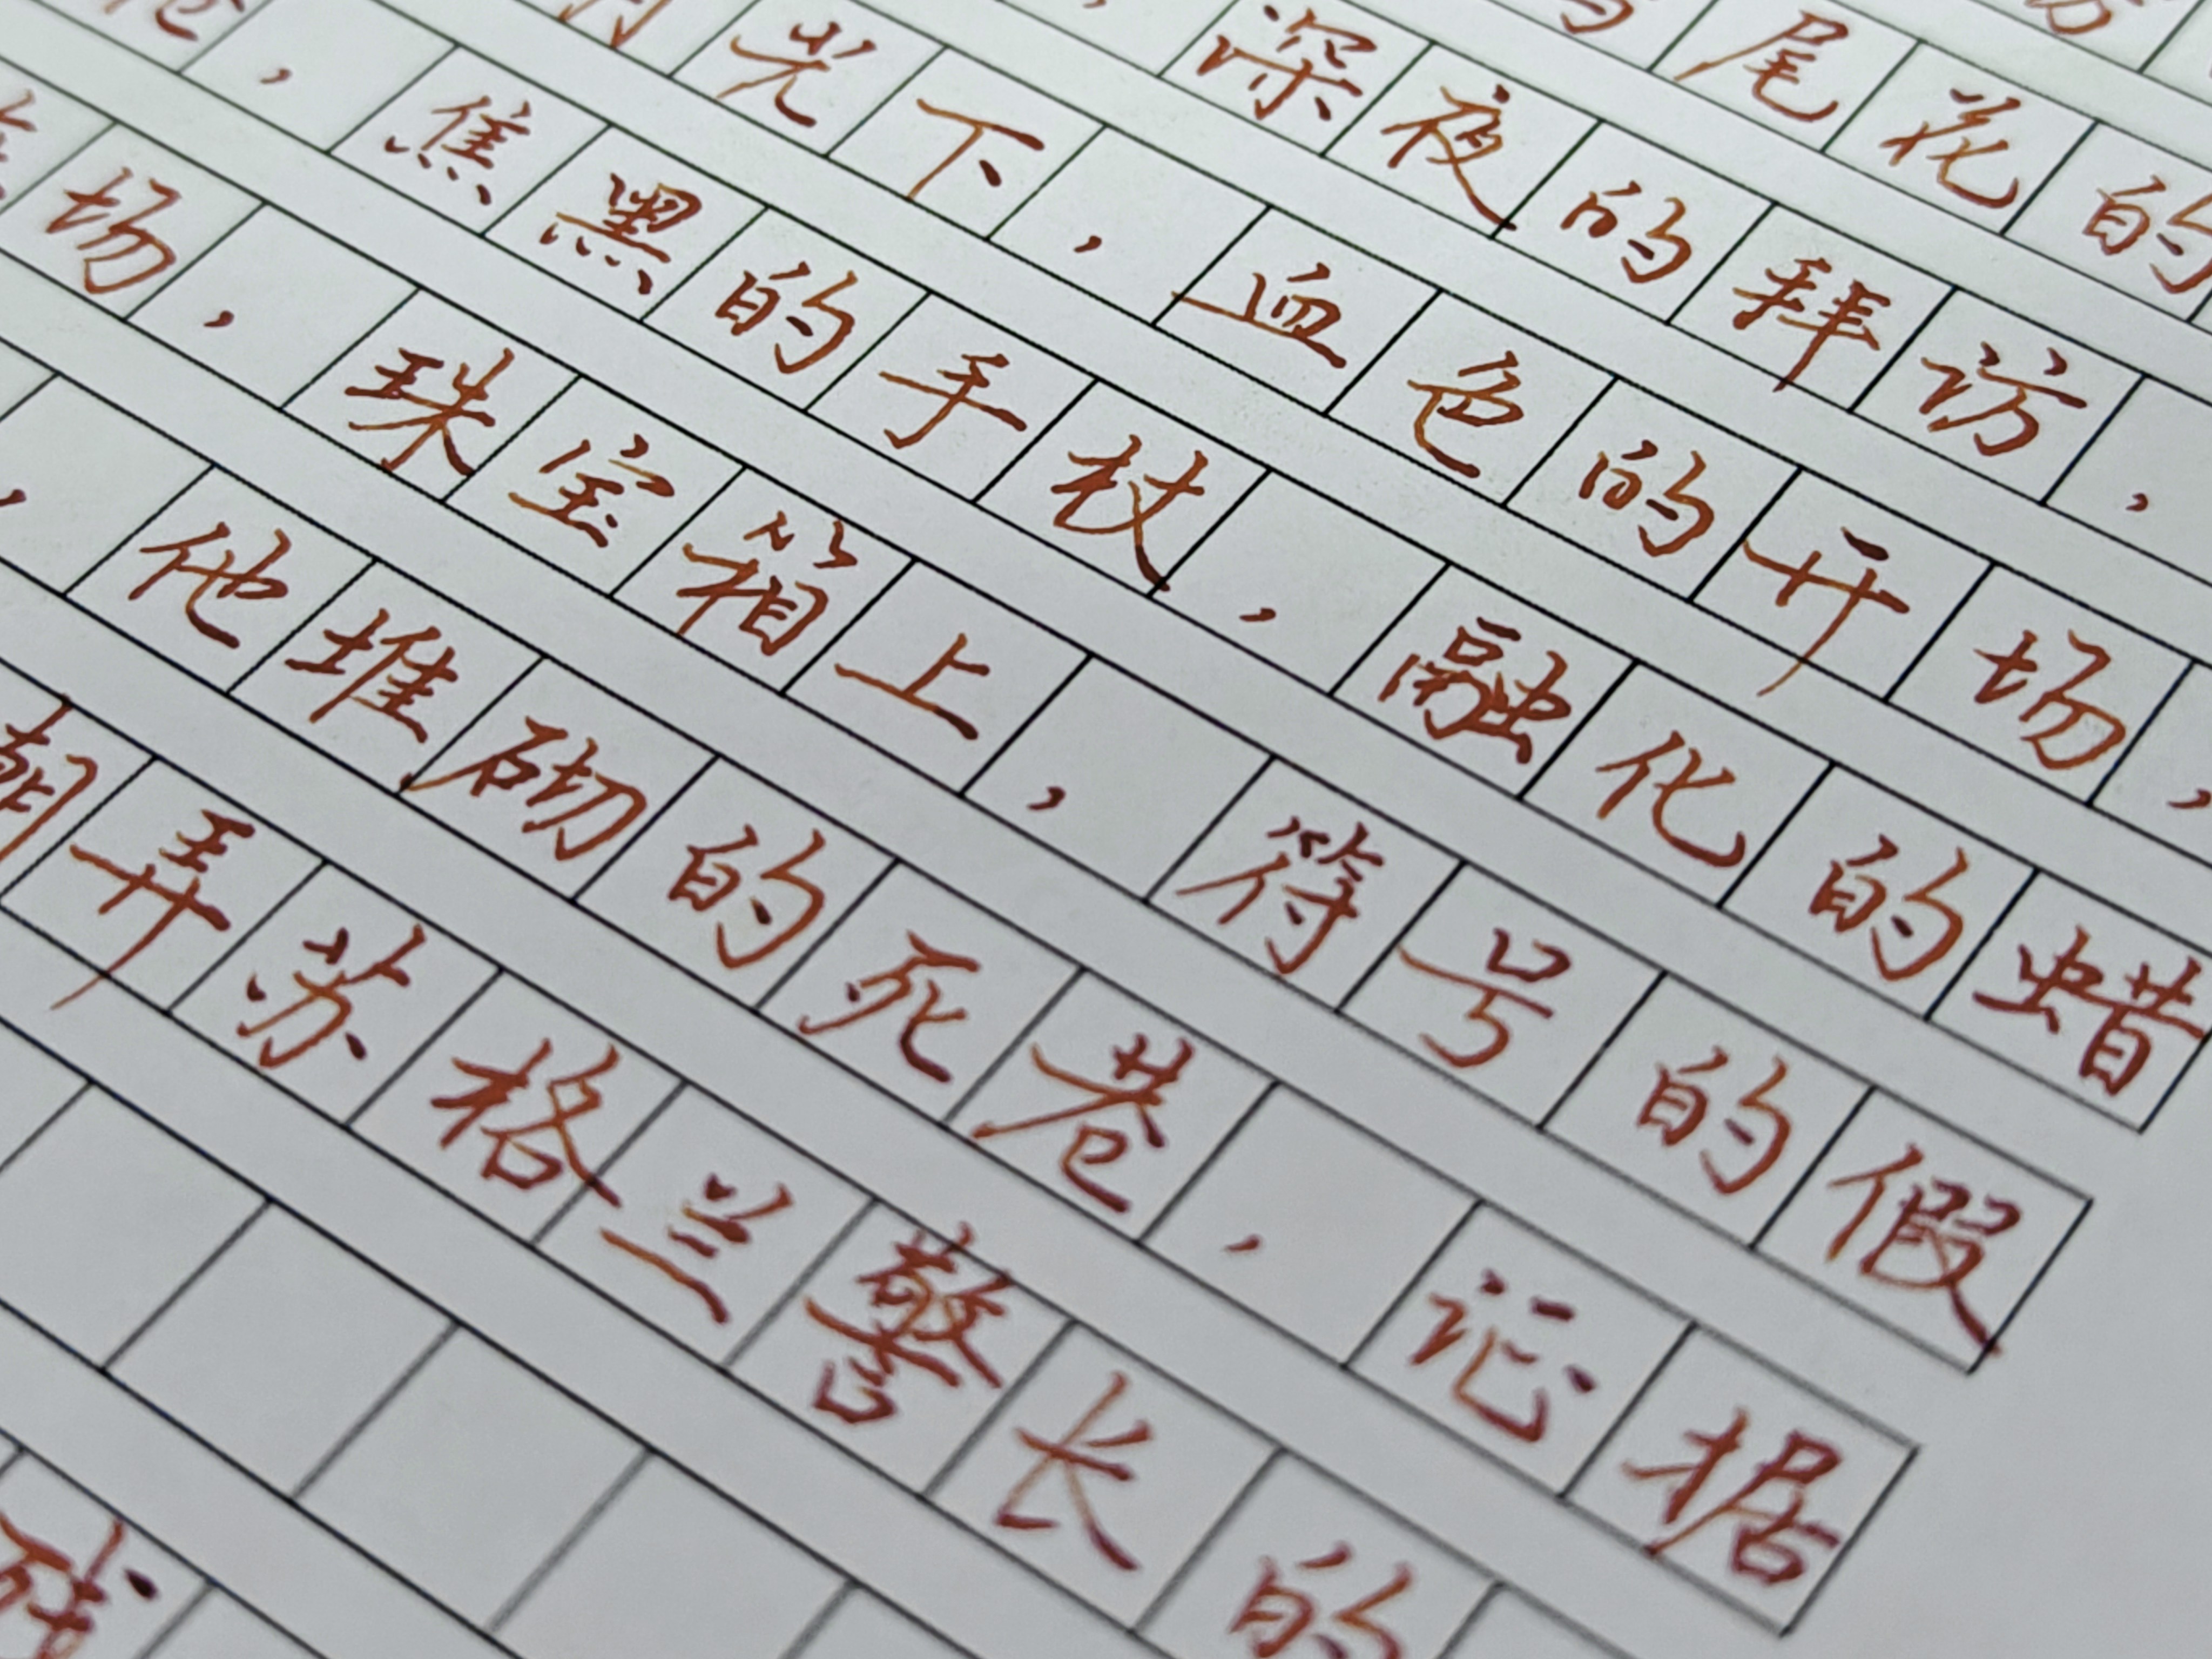 尾花的
深夜的拜访，
光下，血色的开场，
，焦黑的手杖，融化的蜡
场，珠宝箱上，符号的假
，他堆砌的死巷，证据
弄苏格兰警长的
残